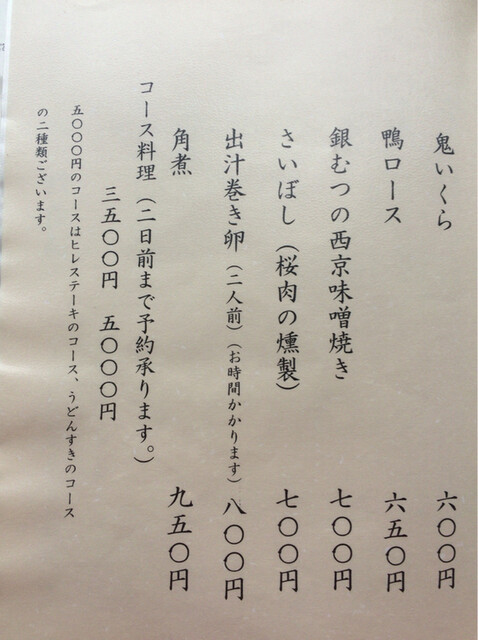 鬼いくら 六〇〇円
鴨ロース 六五〇円
銀むつの西京味噌焼き 七〇〇円
さいぼし（桜肉の燻製） 七〇〇円
出汁巻き卵（二人前）（お時間かかります） 八〇〇円
角煮 九五〇円
コース料理（二日前まで予約承ります。）
三五〇〇円 五〇〇〇円
五〇〇〇円のコースはヒレステーキのコース、うどんすきのコース
の二種類ございます。